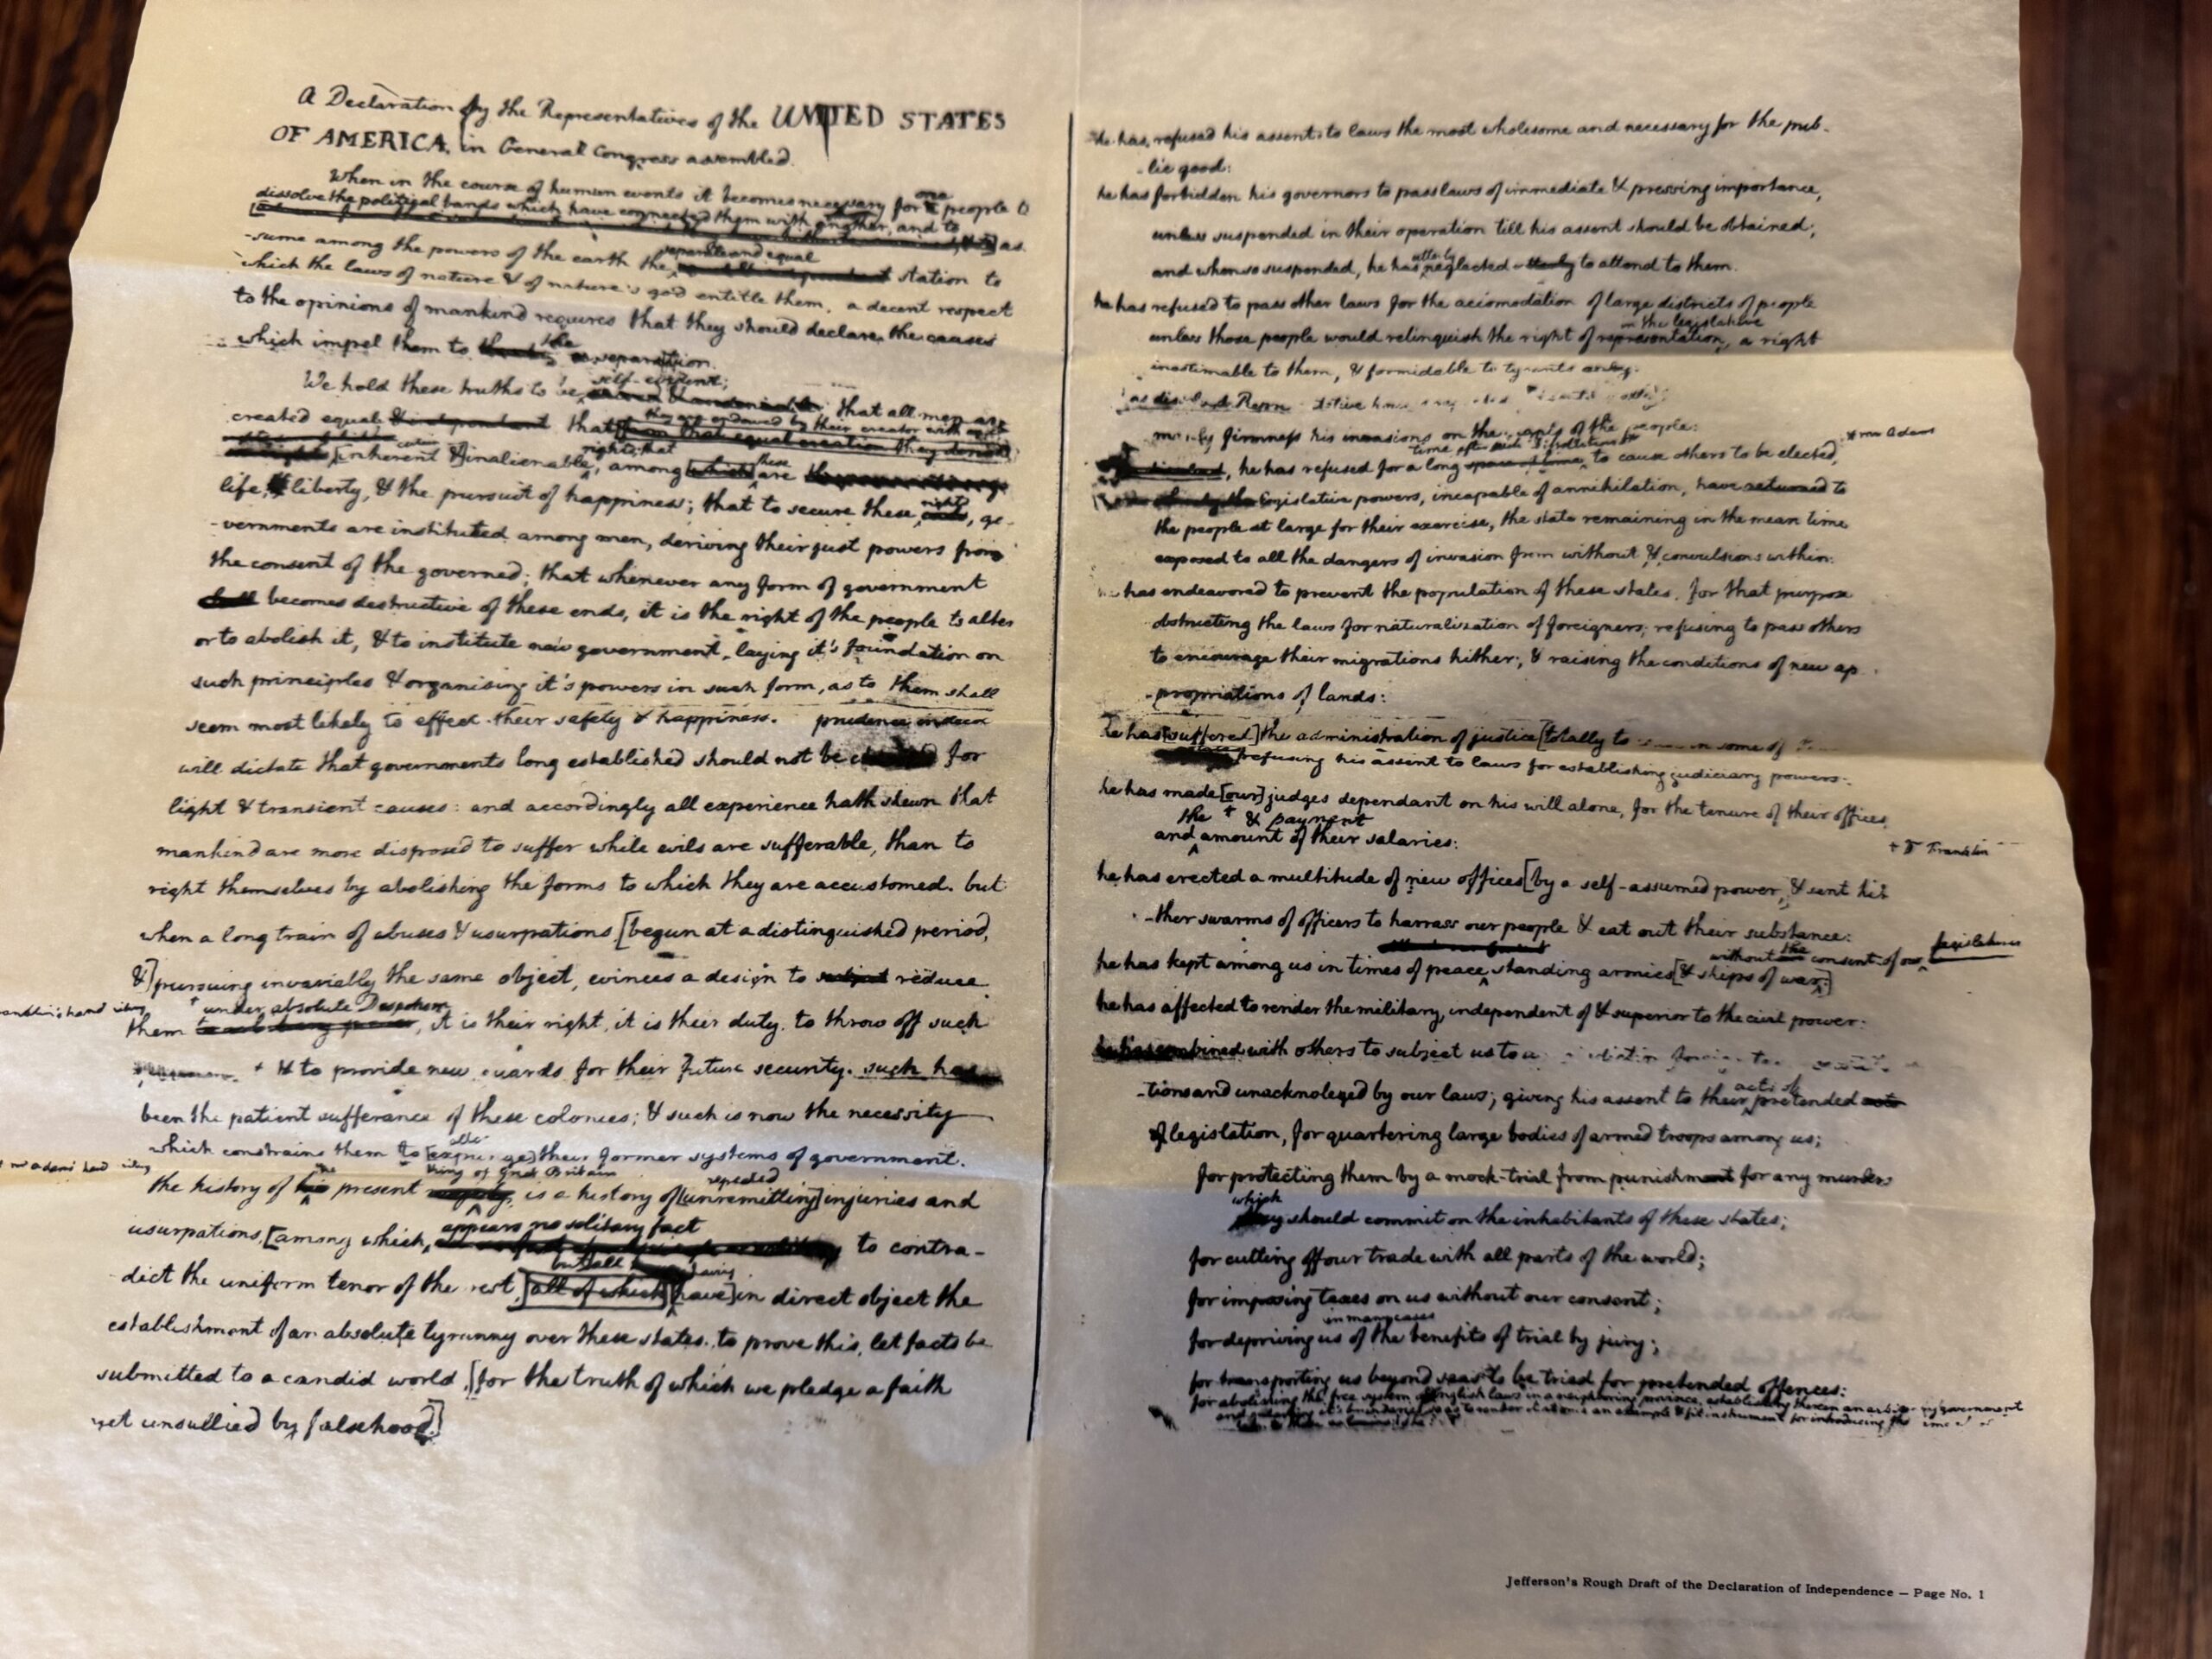 A Declaration by the Representatives of the UNITED STATES
OF AMERICA, in General Congress assembled.
When in the course of human events it becomes necessary for one people to
dissolve the political bands which have connected them with another, and to
-sume among the powers of the earth the separate and equal station to
which the laws of nature & of nature's god entitle them, a decent respect
to the opinions of mankind requires that they should declare the causes
which impel them to the separation.
We hold these truths to be self-evident; that all men are
created equal & independent that they are endowed by their creator with
from that equal creation they derive
rights; that
[inherent &] inalienable, among [which] these are
life, & liberty, & the pursuit of happiness; that to secure these rights, go-
-vernments are instituted among men, deriving their just powers from
the consent of the governed; that whenever any form of government
shall becomes destructive of these ends, it is the right of the people to alter
or to abolish it, & to institute new government, laying it's foundation on
such principles & organising it's powers in such form, as to them shall
seem most likely to effect their safety & happiness. prudence indeed
will dictate that governments long established should not be for
light & transient causes: and accordingly all experience hath shewn that
mankind are more disposed to suffer while evils are sufferable, than to
right themselves by abolishing the forms to which they are accustomed. but
when a long train of abuses & usurpations, [begun at a distinguished period,
&] pursuing invariably the same object, evinces a design to subject reduce
under absolute Despotism
them , it is their right, it is their duty, to throw off such
& to provide new guards for their future security. such has
been the patient sufferance of these colonies; & such is now the necessity
which constrains them to [expunge] their former systems of government.
king of Great Britain
repeated
the history of his present is a history of [unremitting] injuries and
appears no solitary fact
usurpations, [among which, to contra-
but all having
dict the uniform tenor of the rest, [all of which] [have] in direct object the
establishment of an absolute tyranny over these states. to prove this, let facts be
submitted to a candid world, [for the truth of which we pledge a faith
yet unsullied by falsehood.]
he has refused his assent to laws the most wholesome and necessary for the pub-
-lic good:
he has forbidden his governors to pass laws of immediate & pressing importance,
unless suspended in their operation till his assent should be obtained;
and when so suspended, he has utterly neglected utterly to attend to them.
he has refused to pass other laws for the accomodation of large districts of people
in the legislature
unless those people would relinquish the right of representation, a right
inestimable to them, & formidable to tyrants only:
firmness his invasions on the rights of the people:
time after such dissolutions
* mr Adams
, he has refused for a long space of time, to cause others to be elected,
legislative powers, incapable of annihilation, have returned to
the people at large for their exercise, the state remaining in the mean time
exposed to all the dangers of invasion from without & convulsions within:
has endeavored to prevent the population of these states, for that purpose
obstructing the laws for naturalization of foreigners; refusing to pass others
to encourage their migrations hither; & raising the conditions of new ap
-propriations of lands:
he has [suffered] the administration of justice [totally to in some of
refusing his assent to laws for establishing judiciary powers:
he has made [our] judges dependant on his will alone, for the tenure of their offices,
the + & payment
and amount of their salaries:
+ Dr Franklin
he has erected a multitude of new offices [by a self-assumed power, & sent hi-
-ther swarms of officers to harrass our people & eat out their substance:
without the consent of our legislatures
he has kept among us in times of peace standing armies [& ships of war:]
he has affected to render the military, independent of & superior to the civil power:
he has combined with others to subject us to a
-tions and unacknoleged by our laws; giving his assent to their acts of pretended acts
of legislation, for quartering large bodies of armed troops among us;
for protecting them by a mock-trial from punishment for any murders
which
they should commit on the inhabitants of these states;
for cutting off our trade with all parts of the world;
for imposing taxes on us without our consent;
in many cases
for depriving us of the benefits of trial by jury;
for transporting us beyond seas to be tried for pretended offences:
for abolishing the free system of English laws in a neighboring province, establishing therein an arbitrary government
Jefferson's Rough Draft of the Declaration of Independence — Page No. 1